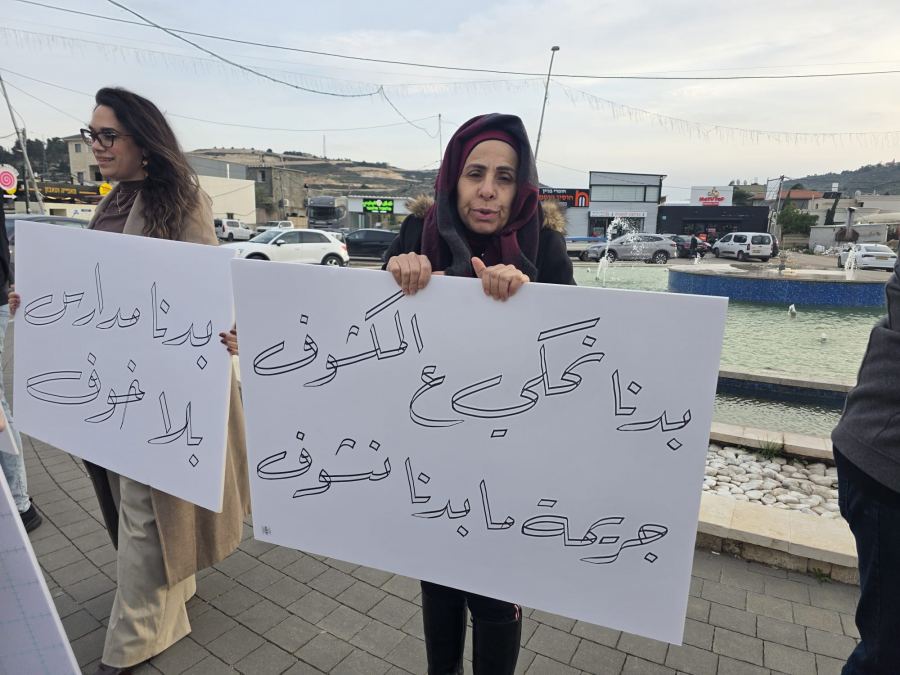 بدنا نحكي ع المكشوف
جريمة ما بدنا نشوف
بدنا مدارس
بلا خوف